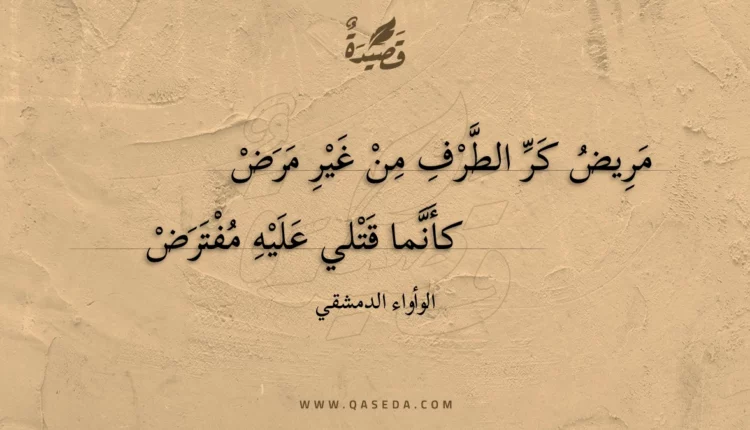 قَصِيْدَةٌ
مَرِيضُ كَرِّ الطَّرْفِ مِنْ غَيْرِ مَرَضْ
كأَنَّما قَتْلي عَلَيْهِ مُفْتَرَضْ
الوأواء الدمشقي
WWW.QASEDA.COM